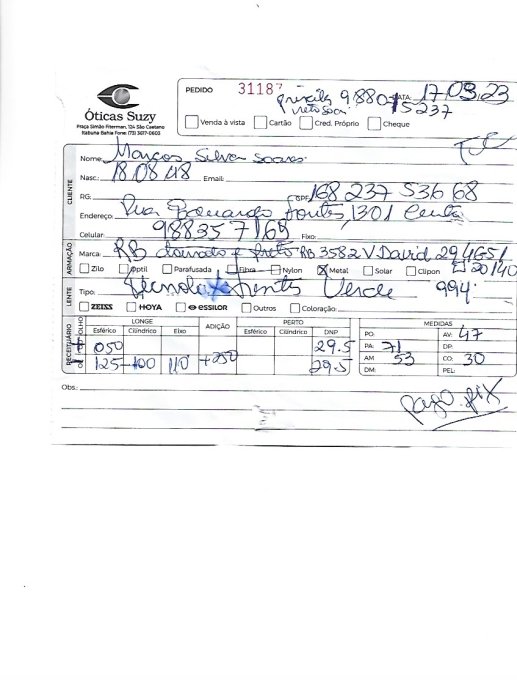 Óticas Suzy
Praça Simão Fiterman, 124 São Caetano
Itabuna Bahia Fone: (73) 3617-0603
PEDIDO 31187 DATA: 17.03.23
98805237
Venda à vista Cartão Cred. Próprio Cheque
CLIENTE
Nome: Marcos Silva Soares
Nasc.: 18 08 48 Email:
RG: CPF: 168 237 536 68
Endereço: Rua Eduardo Fontes, 1301
Celular: 988357168 Fixo:
ARMAÇÃO
Marca: RB dourado e preto RB 3582V David 29465/
Zilo Óptil Parafusada Fibra Nylon Metal Solar Clipon 20140
LENTE
Tipo: Verde 994,
ZEISS HOYA essilor Outros Coloração:
RECEITUÁRIO
OLHO LONGE ADIÇÃO PERTO MEDIDAS
Esférico Cilíndrico Eixo Esférico Cilíndrico DNP
+ 050 29.5
- 125 -100 110 +250 29.5
PO: AV: 47
PA: 71 DP:
AM: 53 CO: 30
DM: PEL:
Obs.:
pago pix